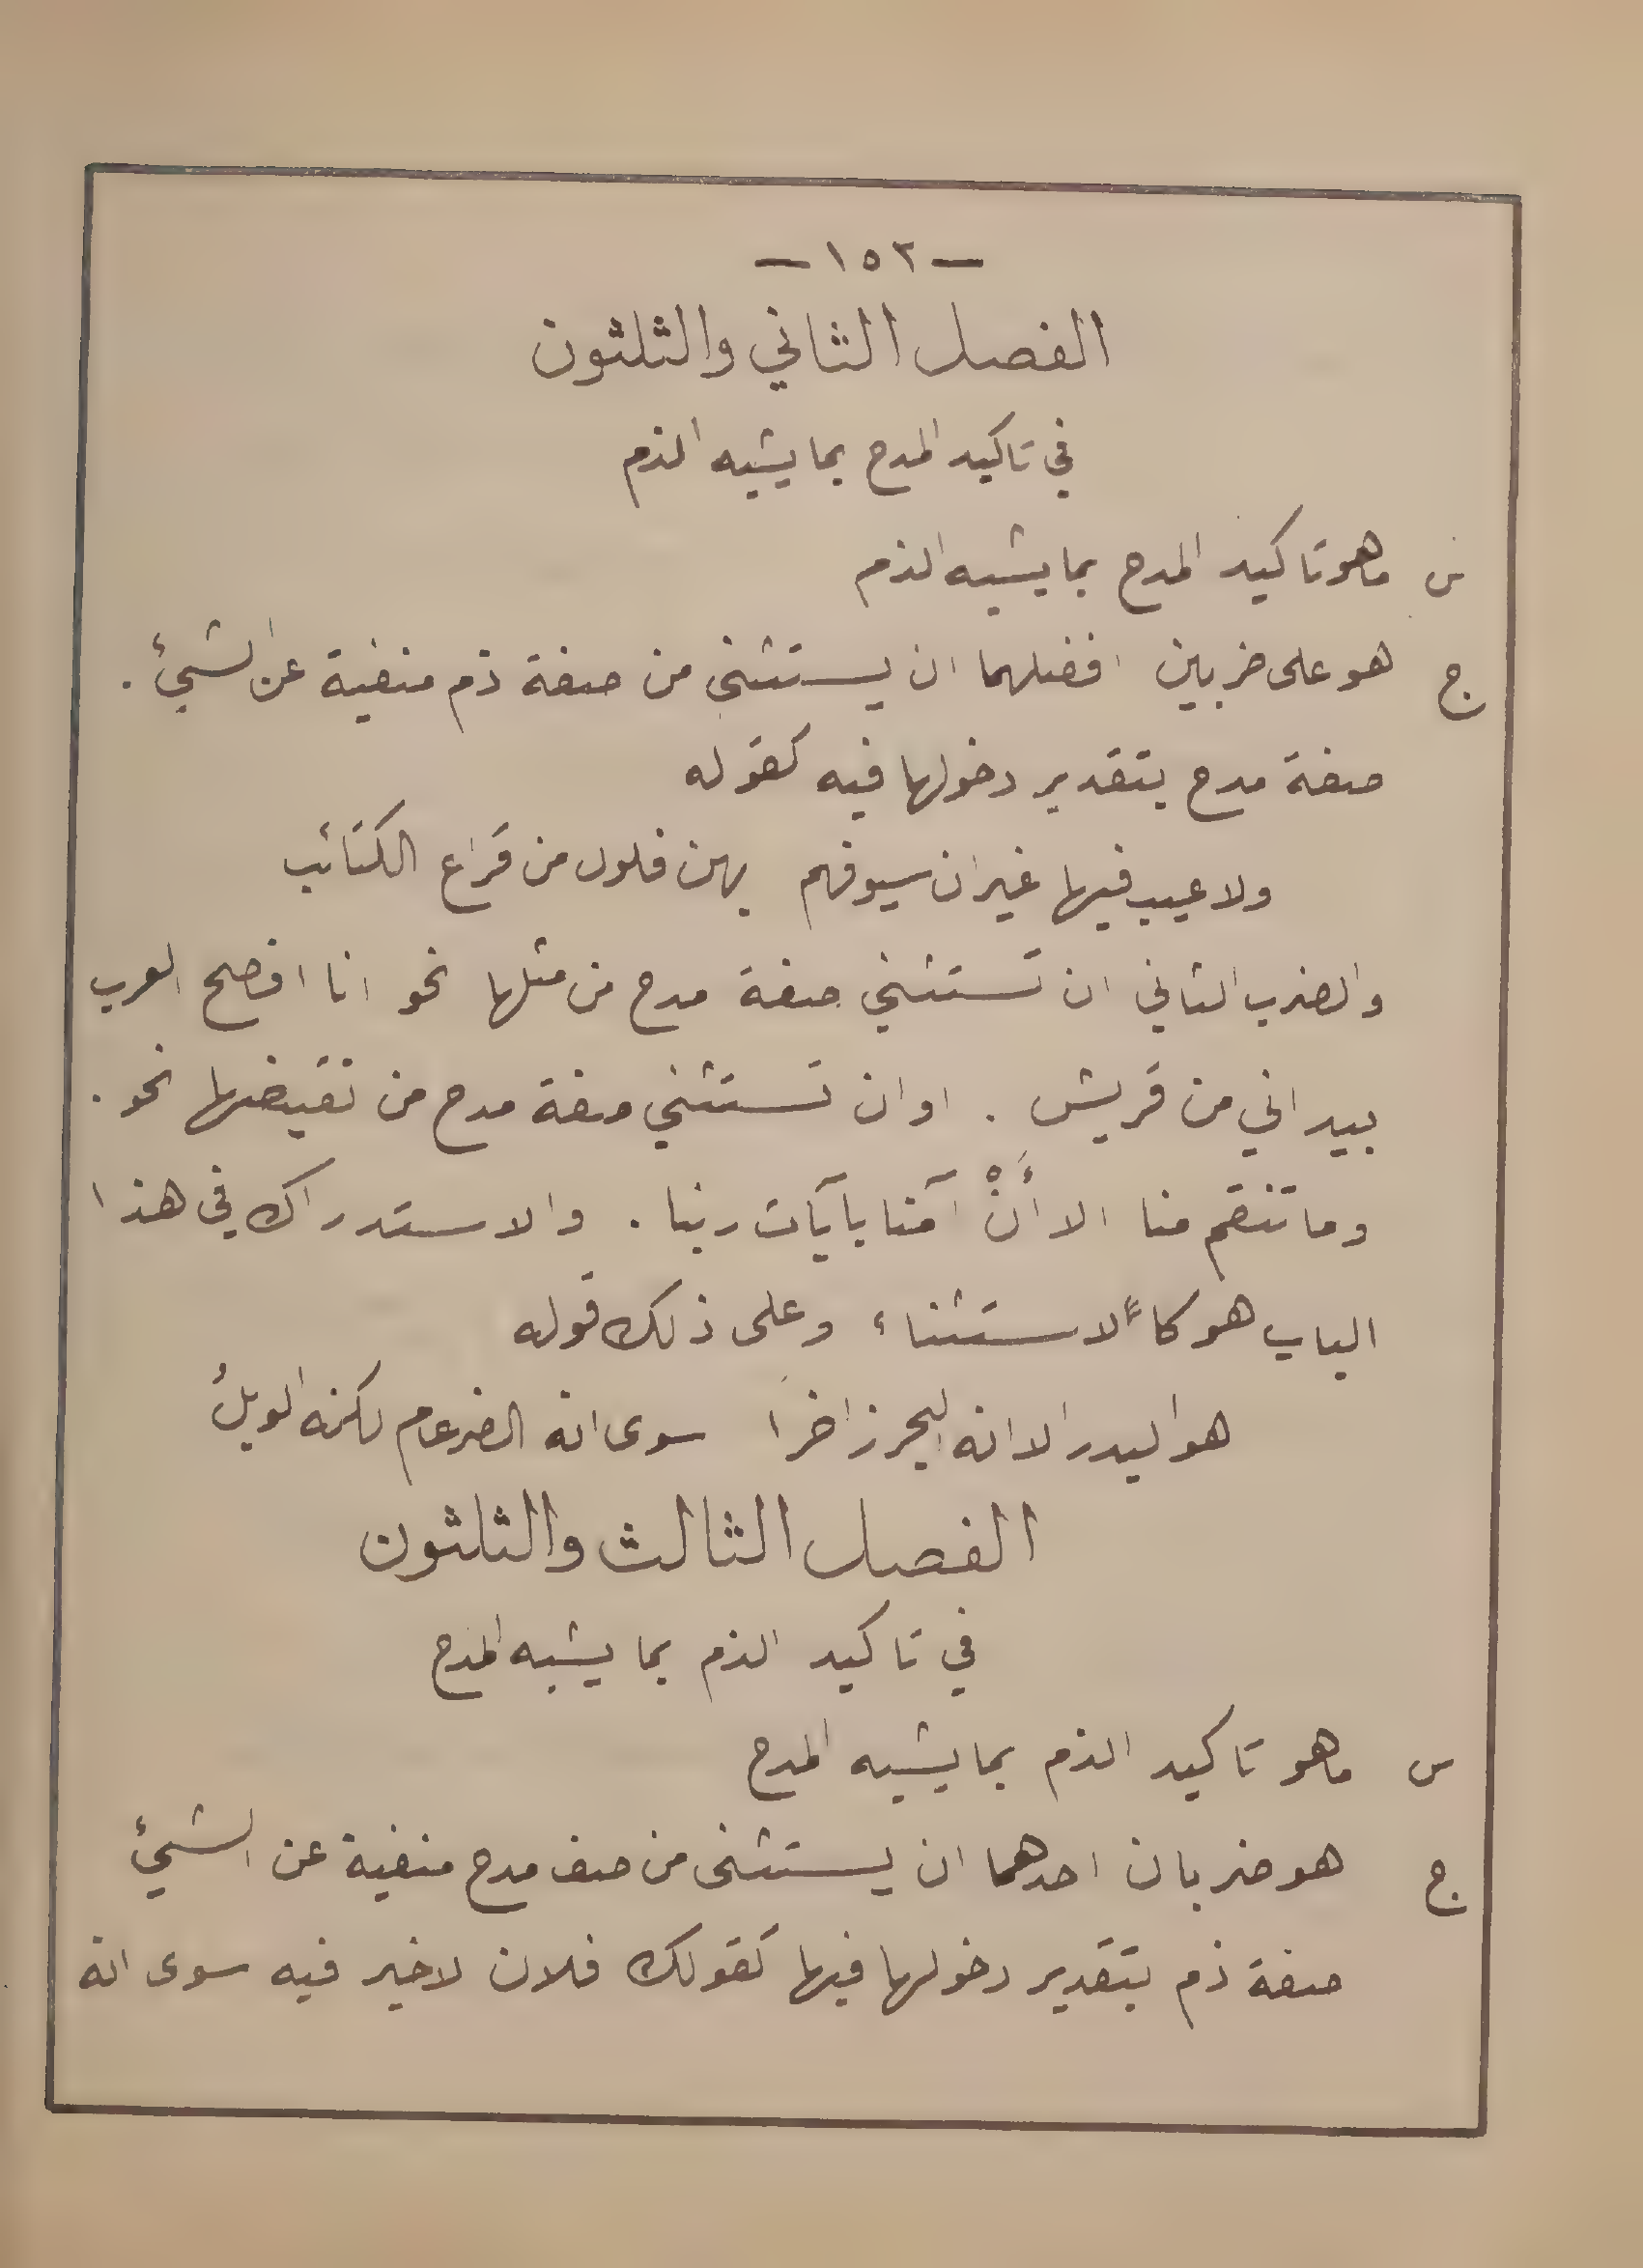 — ١٥٢ —
الفصل الثاني والثلثون
في تاكيد المدح بما يشبه الذم
س ما هو تاكيد المدح بما يشبه الذم
ج هو على ضربين افضلهما ان يستثنى من صفة ذم منفية عن الشيئ .
صفة مدح بتقدير دخولها فيه كقوله
ولا عيب فيها غير ان سيوفهم بهن فلول من قراع الكتائب
والضرب الثاني ان تستثني صفة مدح من مثلها نحو انا افصح العرب
بيد اني من قريش . او ان تستثني صفة مدح من نقيضها نحو .
وما تنقم منا الا أَنْ آمنا بآيآت ربنا . والاستدراك في هذا
الباب هو كالاستثناء وعلى ذلك قوله
هو البدر الا انه البحر زاخرا سوى انه الضرغام لكنه الوبلُ
الفصل الثالث والثلثون
في تاكيد الذم بما يشبه المدح
س ما هو تاكيد الذم بما يشبه المدح
ج هو ضربان احدهما ان يستثنى من صف مدح منفية عن الشيئ
صفة ذم بتقدير دخولها فيها كقولك فلان لا خير فيه سوى انه